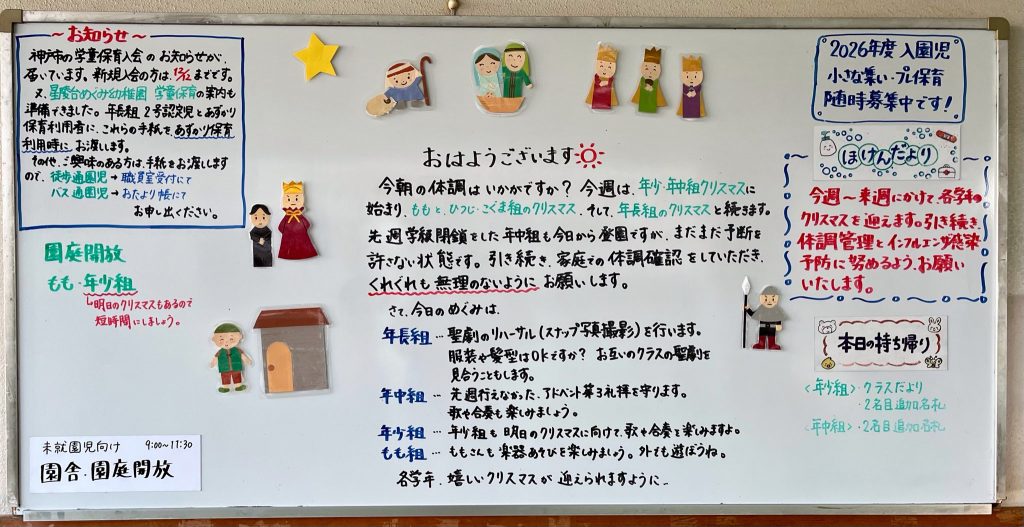 ～お知らせ～
神戸市の学童保育入会のお知らせが、
届いています。新規入会の方は、12/12までです。
又、星陵台めぐみ幼稚園 学童保育の案内も
準備できました。年長組 2号認定児とあずかり
保育利用者に、これらの手紙をあずかり保育
利用時に、お渡しします。
その他、ご興味のある方は、手紙をお渡しします
ので、徒歩通園児→職員室受付にて
バス通園児→おたより帳にて
お申し出ください。
園庭開放
もも・年少組
明日のクリスマスもあるので
短時間にしましょう。
未就園児向け 9:00～11:30
園舎・園庭開放
おはようございます
今朝の体調はいかがですか？今週は、年少・年中組クリスマスに
始まり、ももと、ひつじ・こぐま組のクリスマス、そして、年長組のクリスマスと続きます。
先週学級閉鎖をした年中組も今日から登園ですが、まだまだ予断を
許さない状態です。引き続き、家庭での体調確認をしていただき、
くれぐれも無理のないようにお願いします。
さて、今日のめぐみは、
年長組…聖劇のリハーサル(スナップ写真撮影)を行います。
服装や髪型はOKですか？お互いのクラスの聖劇を
見合うこともします。
年中組…先週行えなかった、アドベント第3礼拝を守ります。
歌や合奏も楽しみましょう。
年少組…年少組も明日のクリスマスに向けて、歌や合奏を楽しみますよ。
もも組…ももさんも楽器あそびを楽しみましょう。外でも遊ぼうね。
各学年、嬉しいクリスマスが迎えられますように…
2026年度 入園児
小さな集い・プレ保育
随時募集中です！
ほけんだより
今週～来週にかけて、各学年の
クリスマスを迎えます。引き続き、
体調管理とインフルエンザ感染
予防に努めるよう、お願い
いたします。
本日の持ち帰り
〈年少組〉・クラスだより
・2名目追加名札
〈年中組〉・2名目追加名札